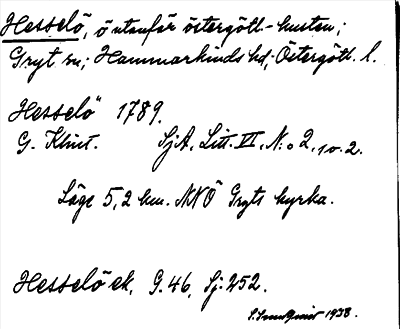 Hesselö, ö utanför östergötl.-kusten;
Gryt sn; Hammarkinds hd; Östergötl. l.
"Hesselö" 1789.
G. Klint. SjA, Litt. VI, N:o 2, 10. 2.
Läge 5,2 km. NNÖ Gryts kyrka.
Hesselö ek. G.46, Sj. 252.
1938.